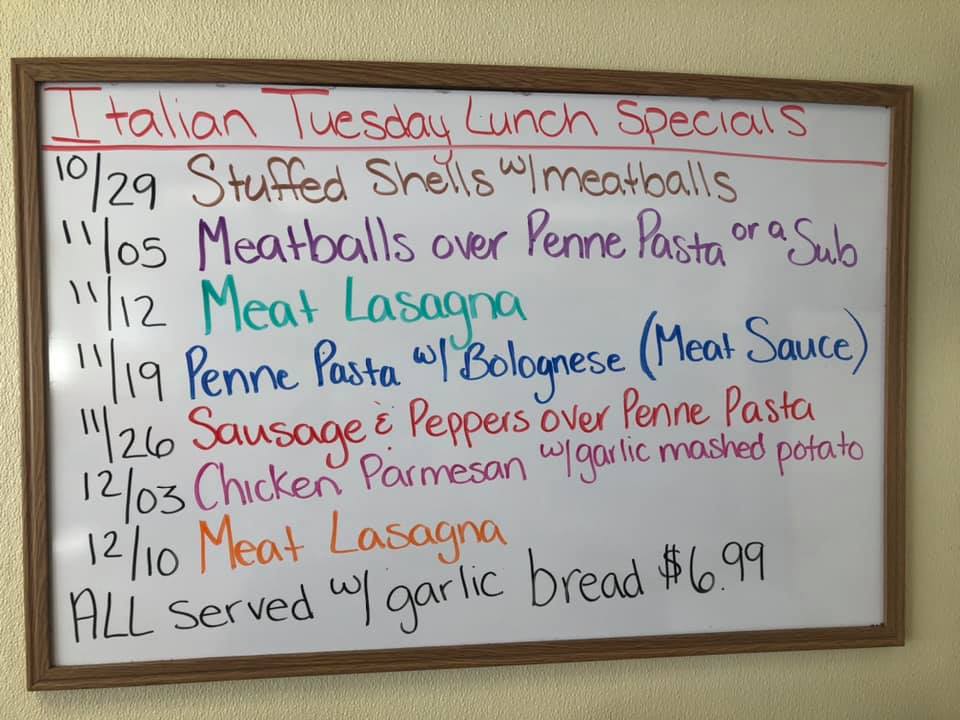 Italian Tuesday Lunch Specials
10/29 Stuffed Shells w/meatballs
11/05 Meatballs over Penne Pasta or a Sub
11/12 Meat Lasagna
11/19 Penne Pasta w/ Bolognese (Meat Sauce)
11/26 Sausage & Peppers over Penne Pasta
12/03 Chicken Parmesan w/garlic mashed potato
12/10 Meat Lasagna
ALL served w/ garlic bread $6.99